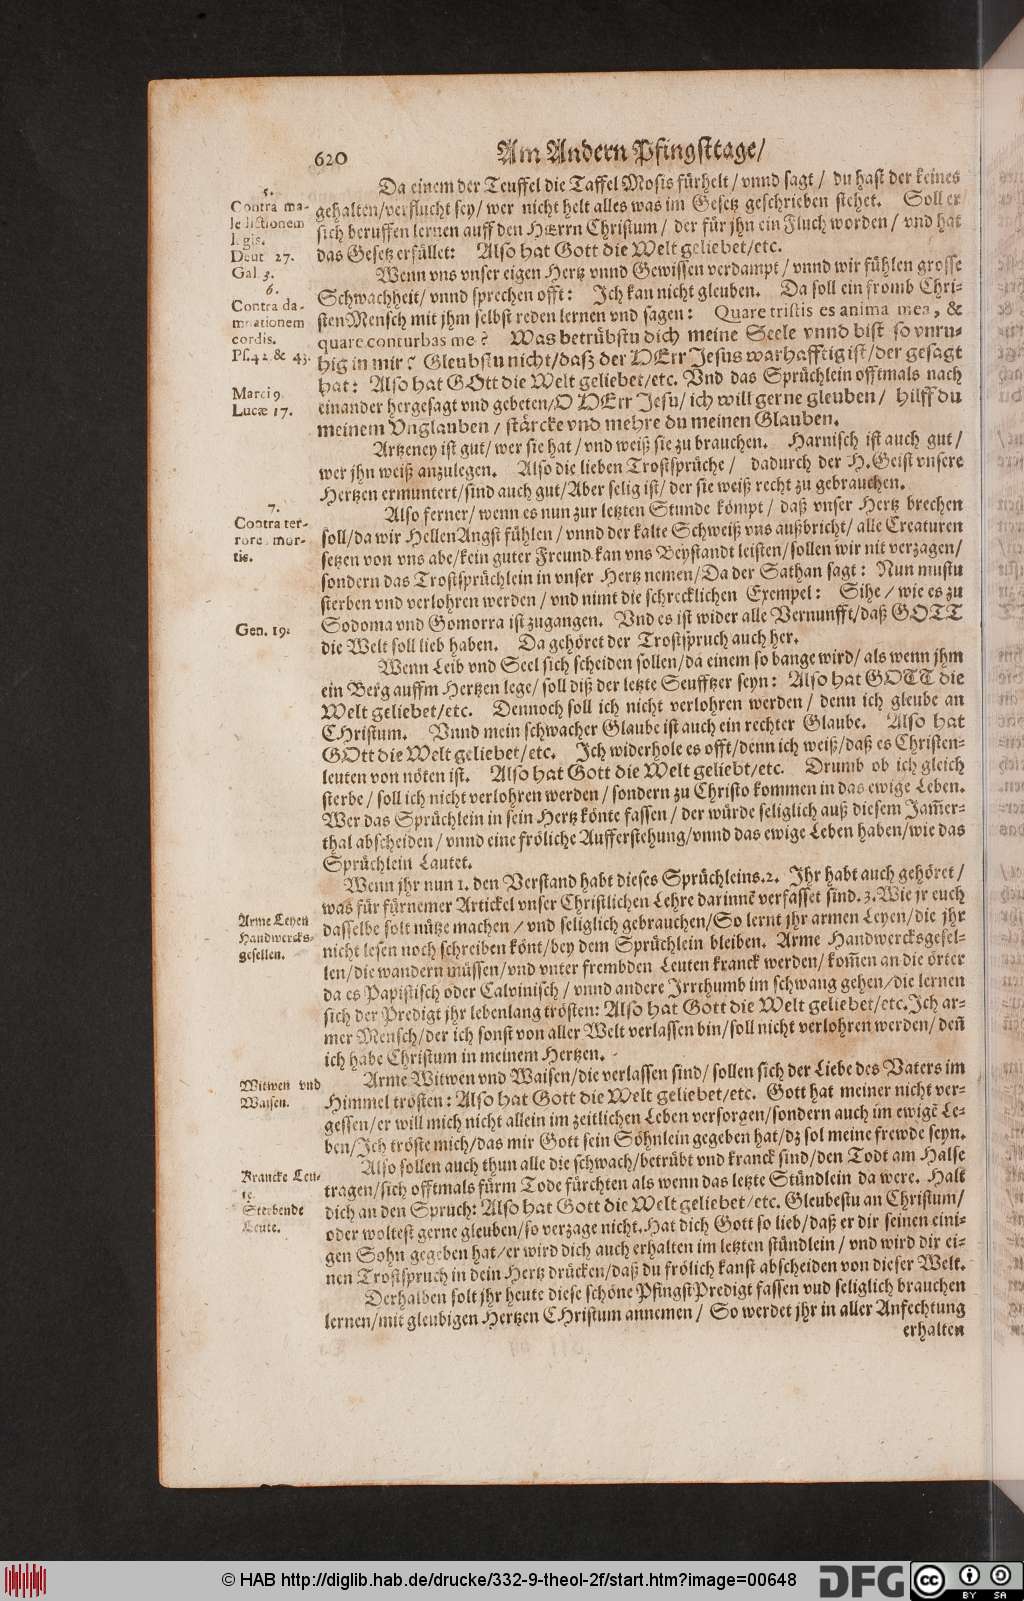 620
Am Andern Pfingsttage/
Da einem der Teuffel die Taffel Mosis fürhelt / vnnd sagt / du hast der keines
gehalten/verflucht sey/ wer nicht helt alles was im Gesetz geschrieben stehet. Soll er
sich beruffen lernen auff den HErrn Christum / der für jhn ein Fluch worden / vnd hat
das Gesetz erfüllet: Also hat Gott die Welt geliebet/etc.
5.
Contra ma-
ledictionem
legis.
Deut 27.
Gal 3.
Wenn vns vnser eigen Hertz vnnd Gewissen verdampt / vnnd wir fühlen grosse
Schwachheit/ vnnd sprechen offt: Ich kan nicht gleuben. Da soll ein fromb Chri-
sten Mensch mit jhm selbst reden lernen vnd sagen: Quare tristis es anima mea, &
quare conturbas me? Was betrübstu dich meine Seele vnnd bist so vnru-
hig in mir? Gleubstu nicht/daß der HErr Jesus warhafftig ist/der gesagt
hat: Also hat GOtt die Welt geliebet/etc. Vnd das Sprüchlein offtmals nach
einander hergesagt vnd gebeten/O HErr Jesu/ ich will gerne gleuben / hilff du
meinem Vnglauben / stärcke vnd mehre du meinen Glauben.
6.
Contra da-
mnationem
cordis.
Ps.42 & 43.
Marci 9.
Lucæ 17.
Artzeney ist gut/ wer sie hat / vnd weiß sie zu brauchen. Harnisch ist auch gut/
wer jhn weiß anzulegen. Also die lieben Trostsprüche / dadurch der H. Geist vnsere
Hertzen ermuntert/sind auch gut/Aber selig ist/ der sie weiß recht zu gebrauchen.
Also ferner/ wenn es nun zur letzten Stunde kömpt / daß vnser Hertz brechen
soll/da wir Hellen Angst fühlen / vnnd der kalte Schweiß vns außbricht/ alle Creaturen
setzen von vns abe/kein guter Freund kan vns Beystandt leisten/sollen wir nit verzagen/
sondern das Trostsprüchlein in vnser Hertz nemen/Da der Sathan sagt: Nun mustu
sterben vnd verlohren werden / vnd nimt die schrecklichen Exempel: Sihe / wie es zu
Sodoma vnd Gomorra ist zugangen. Vnd es ist wider alle Vernunfft/daß GOTT
die Welt soll lieb haben. Da gehöret der Trostspruch auch her.
7.
Contra ter-
rorem mor-
tis.
Gen. 19.
Wenn Leib vnd Seel sich scheiden sollen/da einem so bange wird/ als wenn jhm
ein Berg auffm Hertzen lege/ soll diß der letzte Seufftzer seyn: Also hat GOTT die
Welt geliebet/etc. Dennoch soll ich nicht verlohren werden / denn ich gleube an
CHristum. Vnnd mein schwacher Glaube ist auch ein rechter Glaube. Also hat
GOtt die Welt geliebet/etc. Ich widerhole es offt/denn ich weiß/daß es Christen-
leuten von nöten ist. Also hat Gott die Welt geliebt/etc. Drumb ob ich gleich
sterbe / soll ich nicht verlohren werden / sondern zu Christo kommen in das ewige Leben.
Wer das Sprüchlein in sein Hertz könte fassen / der würde seliglich auß diesem Jam̃er-
thal abscheiden / vnnd eine fröliche Aufferstehung/vnnd das ewige Leben haben/wie das
Sprüchlein Lautet.
Wenn jhr nun 1. den Verstand habt dieses Sprüchleins.2. Ihr habt auch gehöret /
was für fürnemer Artickel vnser Christlichen Lehre darinnē verfasset sind. 3. Wie jr euch
dasselbe solt nütze machen / vnd seliglich gebrauchen/So lernt jhr armen Leyen/die jhr
nicht lesen noch schreiben könt/bey dem Sprüchlein bleiben. Arme Handwercksgesel-
len/die wandern müssen/vnd vnter frembden Leuten kranck werden/ kom̃en an die örter
da es Papistisch oder Calvinisch / vnnd andere Irrthumb im schwang gehen/die lernen
sich der Predigt jhr lebenlang trösten: Also hat Gott die Welt geliebet/etc.Ich ar-
mer Mensch/der ich sonst von aller Welt verlassen bin/soll nicht verlohren werden/ deñ
ich habe Christum in meinem Hertzen.
Arme Leyen
Handwercks-
gesellen.
Arme Witwen vnd Waisen/die verlassen sind/ sollen sich der Liebe des Vaters im
Himmel trösten: Also hat Gott die Welt geliebet/etc. Gott hat meiner nicht ver-
gessen/er will mich nicht allein im zeitlichen Leben versorgen/sondern auch im ewigē Le-
ben/Ich tröste mich/das mir Gott sein Söhnlein gegeben hat/dz sol meine frewde seyn.
Witwen vnd
Waisen.
Also sollen auch thun alle die schwach/betrübt vnd kranck sind/den Todt am Halse
tragen/sich offtmals fürm Tode fürchten als wenn das letzte Stündlein da were. Halt
dich an den Spruch: Also hat Gott die Welt geliebet/etc. Gleubestu an Christum/
oder woltest gerne gleuben/so verzage nicht. Hat dich Gott so lieb/daß er dir seinen eini-
gen Sohn gegeben hat/er wird dich auch erhalten im letzten stündlein / vnd wird dir ei-
nen Trostspruch in dein Hertz drücken/daß du frölich kanst abscheiden von dieser Welt.
Krancke Leu-
te.
Sterbende
Leute.
Derhalben solt jhr heute diese schöne PfingstPredigt fassen vnd seliglich brauchen
lernen/mit gleubigen Hertzen CHristum annemen / So werdet jhr in aller Anfechtung
erhalten
© HAB http://diglib.hab.de/drucke/332-9-theol-2f/start.htm?image=00648
DFG
cc
BY SA